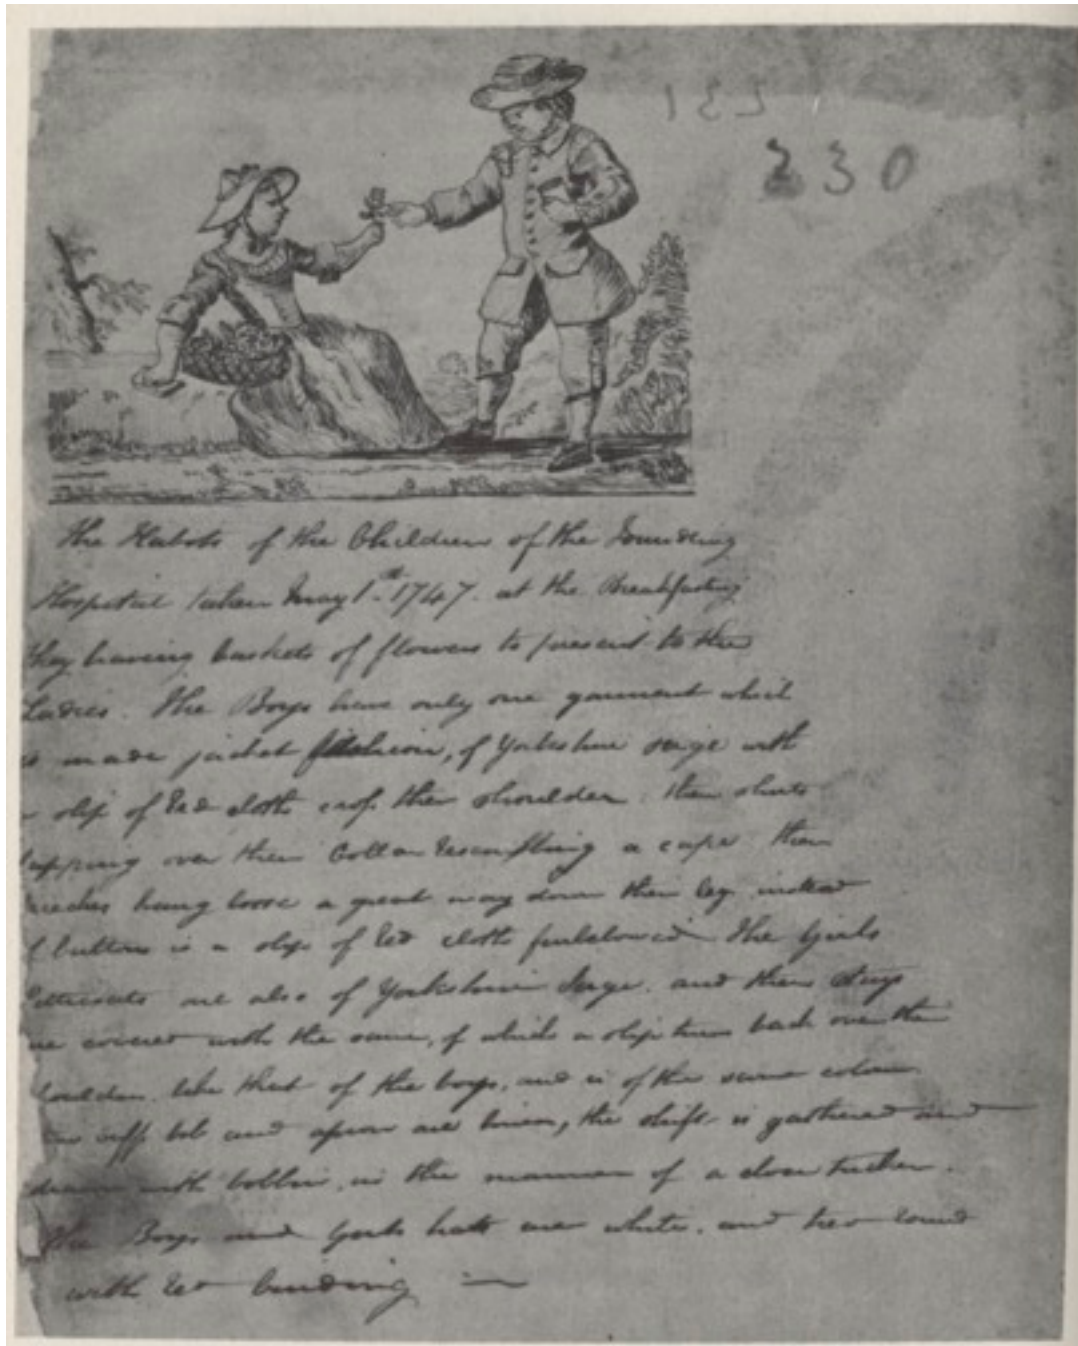 133
230
The Habits of the Children of the Foundling
Hospital taken May 1st 1747. at the Breakfasting
they having baskets of flowers to present to the
Ladies. The Boys have only one garment which
is made jacket fashion, of Yorkshire serge with
a slip of Red cloth cross their shoulder their shirts
lapping over their Collar resembling a cape their
breeches hang loose a great way down their leg instead
of buttons is a slip of Red cloth furbelowed The Girls
Petticoats are also of Yorkshire Serge. and their Stays
are covered with the same, of which a slip turns back over their
shoulder, like that of the boys, and is of the same colour
bib and apron are linen, the shift is gathered and
drawn with bobbin, in the manner of a close tucker.
The Boys and Girls hats are white, and tied round
with Red binding —